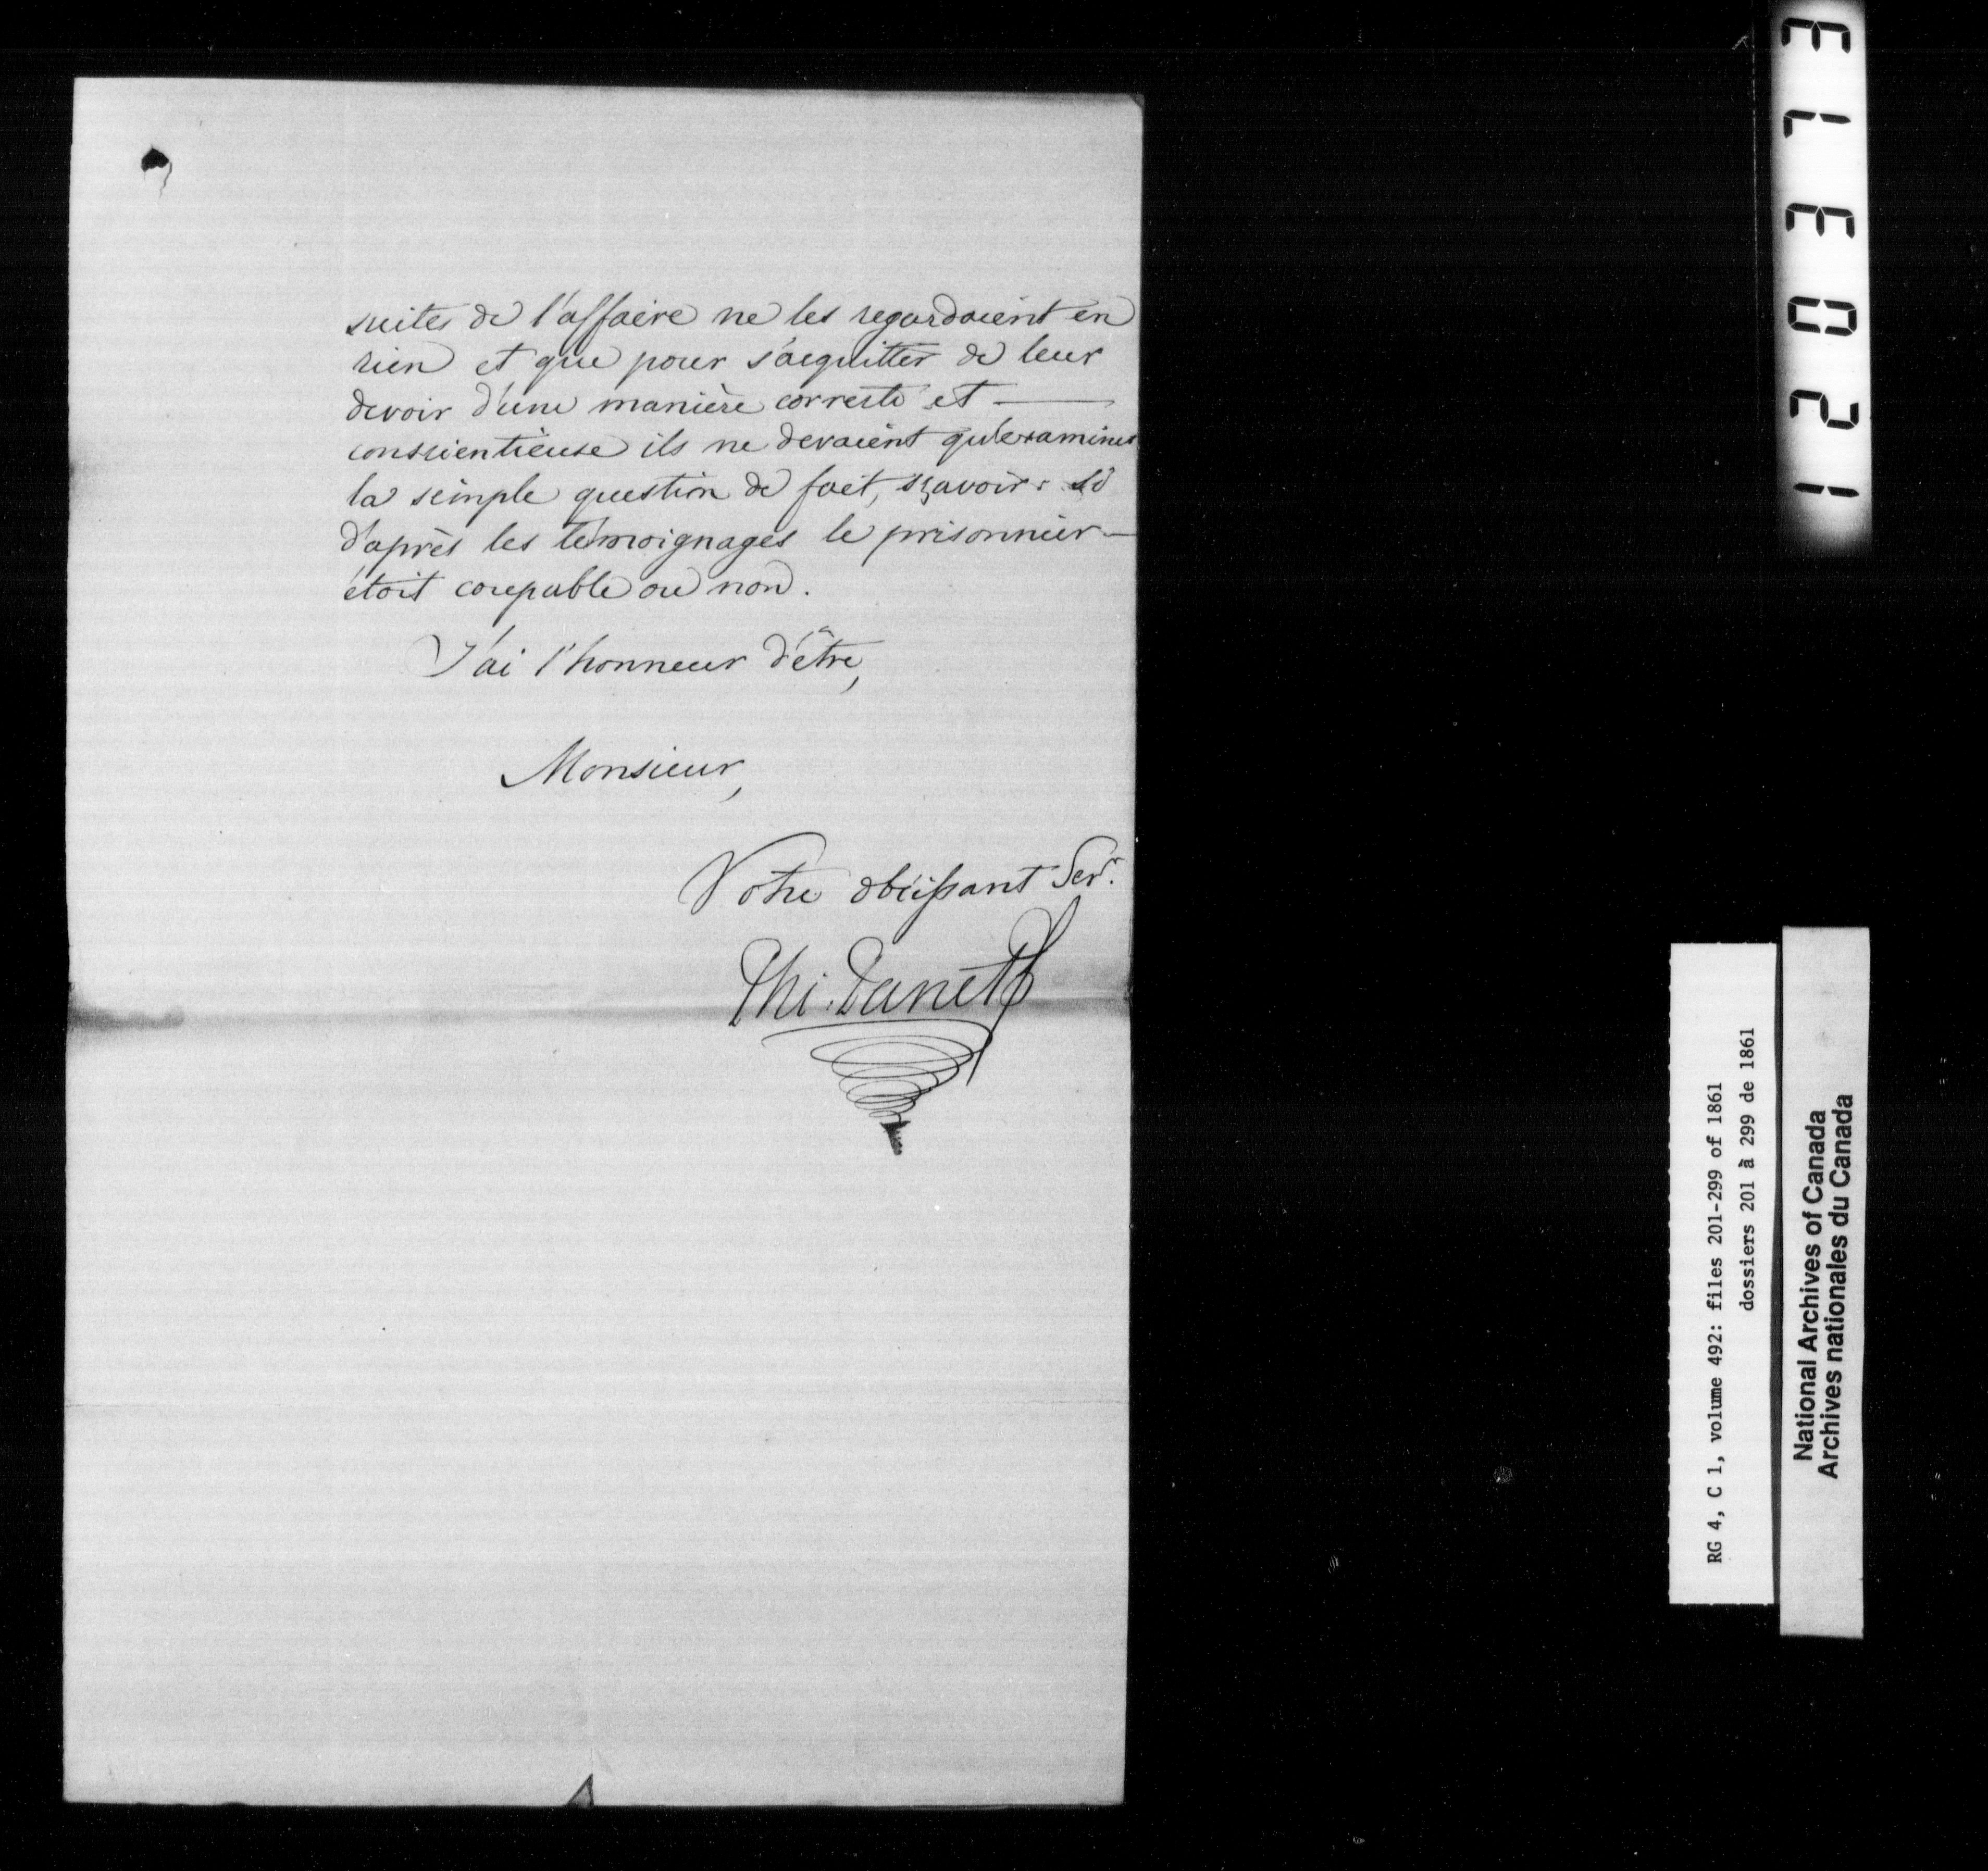 suites de l'affaire ne les regardaient en
rien et que pour s'acquitter de leur
devoir d'une manière correcte et —
consciencieuse ils ne devaient qu'examiner
la simple question de fait, sçavoir: si
d'après les témoignages le prisonnier —
étoit coupable ou non.
J'ai l'honneur d'être,
Monsieur,
Votre obéissant Ser.r
RG 4, C 1, volume 492: files 201-299 of 1861
dossiers 201 à 299 de 1861
National Archives of Canada
Archives nationales du Canada
120313